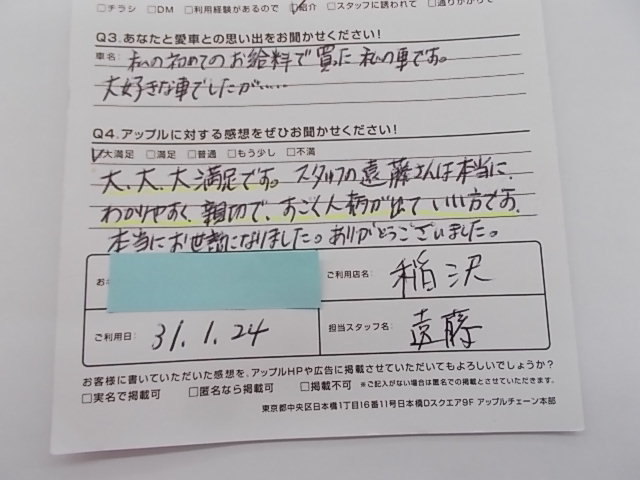 □チラシ □DM □利用経験があるので ☑紹介 □スタッフに誘われて □通りがかりで
Q3.あなたと愛車との思い出をお聞かせください!
車名: 私の初めてのお給料で買った私の車です。
大好きな車でしたが……
Q4.アップルに対する感想をぜひお聞かせください!
☑大満足 □満足 □普通 □もう少し □不満
大、大、大満足です。スタッフの遠藤さんは本当に、
わかりやすく、親切で、すごく人柄が出ていい方です。
本当にお世話になりました。ありがとうございました。
お
ご利用店名: 稲沢
ご利用日: 31.1.24
担当スタッフ名: 遠藤
お客様に書いていただいた感想を、アップルHPや広告に掲載させていただいてもよろしいでしょうか?
□実名で掲載可 □匿名なら掲載可 □掲載不可 ※ご記入がない場合は匿名での掲載とさせていただきます。
東京都中央区日本橋1丁目16番11号日本橋Dスクエア9F アップルチェーン本部